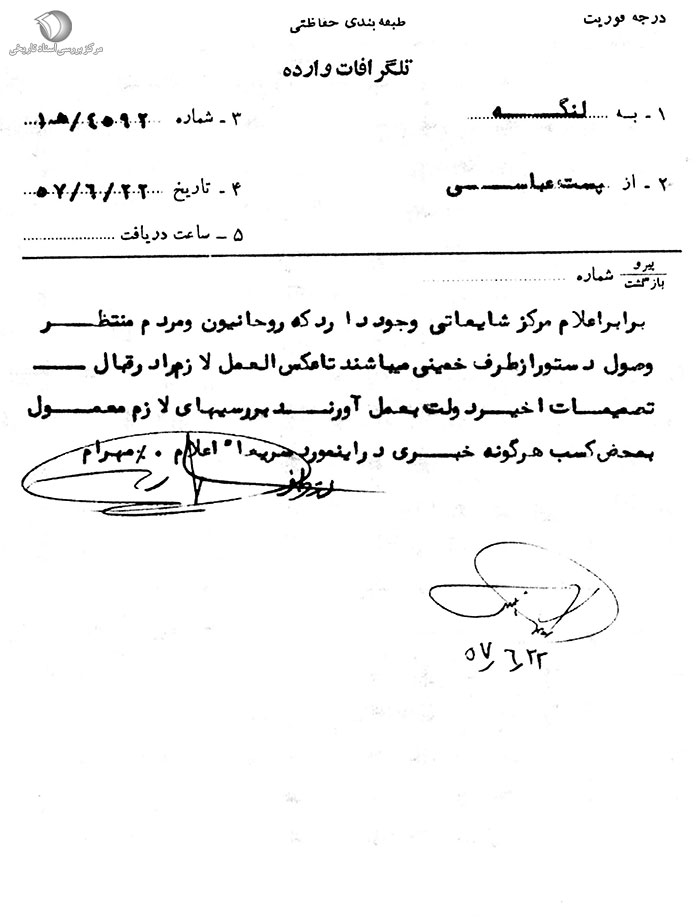 مرکز بررسی اسناد تاریخی
درجه فوریت
طبقه بندی حفاظتی
تلگرافات وارده
۱ - به ..... لنگه
۳ - شماره ۴۵۹۲/ه‍۱
۲ - از پست عباسی
۴ - تاریخ ۵۷/۶/۲۲
۵ - ساعت دریافت
پیرو
بازگشت
شماره
برابر اعلام مرکز شایعاتی وجود دارد که روحانیون و مردم منتظر
وصول دستور از طرف خمینی میباشند تا عکس العمل لازم را در قبال
تصمیمات اخیر دولت بعمل آورند بررسیهای لازم معمول
بمحض کسب هرگونه خبری در اینمورد سریعا" اعلام ۰٪ مهرام
۵۷/۶/۲۲